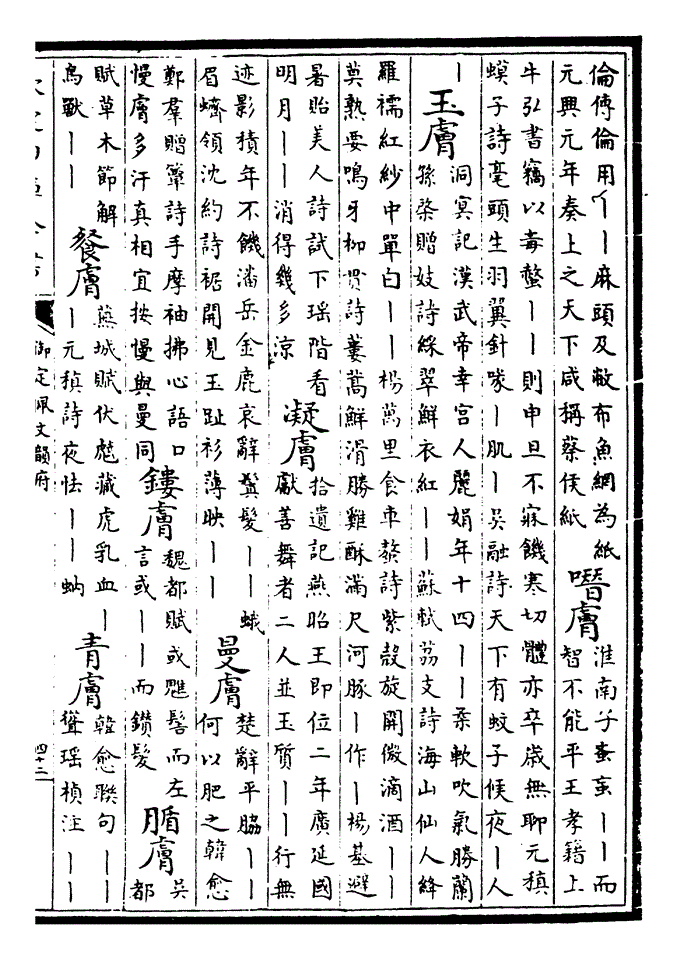 倫傳倫用丫丨丨麻頭及敝布魚網為紙
元興元年奏上之天下咸稱蔡侯紙
噆膚
淮南子蚉䖟丨丨而
智不能平王孝籍上
牛弘書竊以毒螫丨丨則申旦不寐饑寒切體亦卒歲無聊元稹
蟆子詩毫頭生羽翼針喙丨肌丨吳融詩天下有蚊子候夜丨人
丨
玉膚
洞冥記漢武帝幸宮人麗娟年十四丨丨柔軟吹氣勝蘭
孫棨贈妓詩綵翠鮮衣紅丨丨蘇軾荔支詩海山仙人絳
羅襦紅紗中單白丨丨楊萬里食車螯詩紫殼旋開微滴酒丨丨
莫熟要鳴牙柳貫詩蔞蒿鮮滑勝雞酥滿尺河豚丨作丨楊基避
暑貽美人詩試下瑶階看
明月丨丨消得幾多涼
凝膚
拾遺記燕昭王即位二年廣延國
獻善舞者二人並玉質丨丨行無
迹影積年不饑潘岳金鹿哀辭鬒髮丨丨蛾
眉蠐領沈約詩裾開見玉趾衫薄映丨丨
曼膚
楚辭平脇丨丨
何以肥之韓愈
鄭羣贈簟詩手摩袖拂心語口
慢膚多汗真相宜按慢與曼同
鏤膚
魏都賦或魋髻而左
言或丨丨而鑽髮
腯膚
吳
都
賦草木節解
鳥獸丨丨
餐膚
蕪城賦伏虣藏虎乳血丨
丨元稹詩夜怯丨丨蚋
青膚
韓愈聯句丨丨
聳瑶楨注丨丨
御定佩文韻府